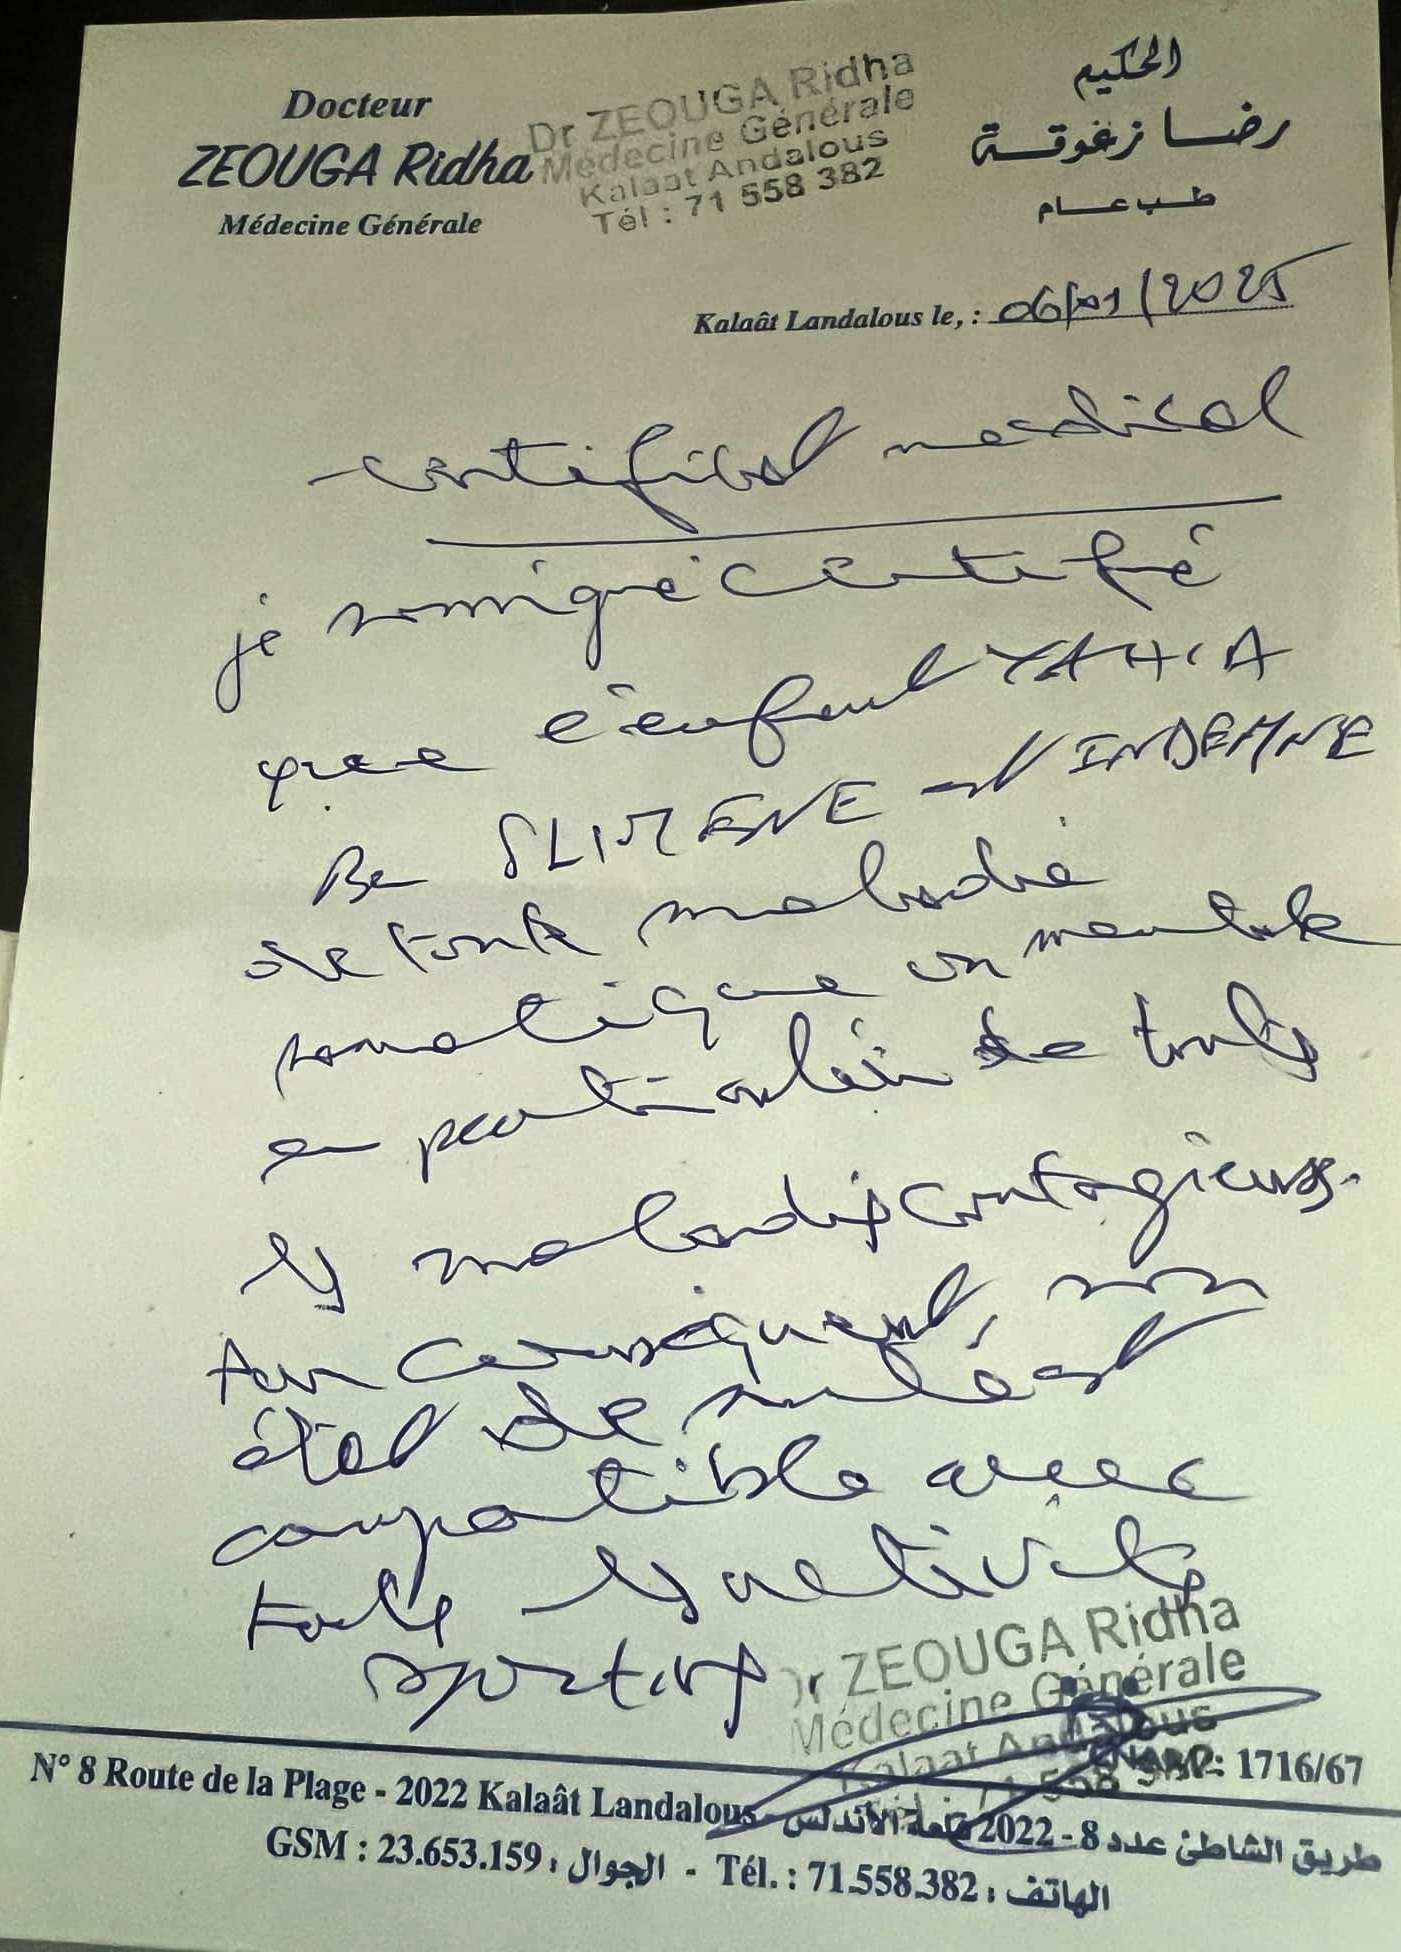 Docteur
ZEOUGA Ridha
Médecine Générale
Dr ZEOUGA Ridha
Médecine Générale
Kalaat Andalous
Tél : 71 558 382
الحكيم
رضا زغوقة
طب عام
Kalaât Landalous le, : 06/01/2025
certificat medical
je soussigné certifié
que l'enfant YAHIA
Ben SLIMENE est INDEMNE
de toute maladie
somatique ou mentale
en particulier de toutes
les maladies contagieuses.
Par conséquent, son
état de santé est
compatible avec
toutes les activités
sportives
Dr ZEOUGA Ridha
Médecine Générale
Kalaat Andalous
71 558 382
1716/67
N° 8 Route de la Plage - 2022 Kalaât Landalous - طريق الشاطئ عدد 8 - 2022 قلعة الأندلس
GSM : 23.653.159 : الجوال - Tél. : 71.558.382 : الهاتف